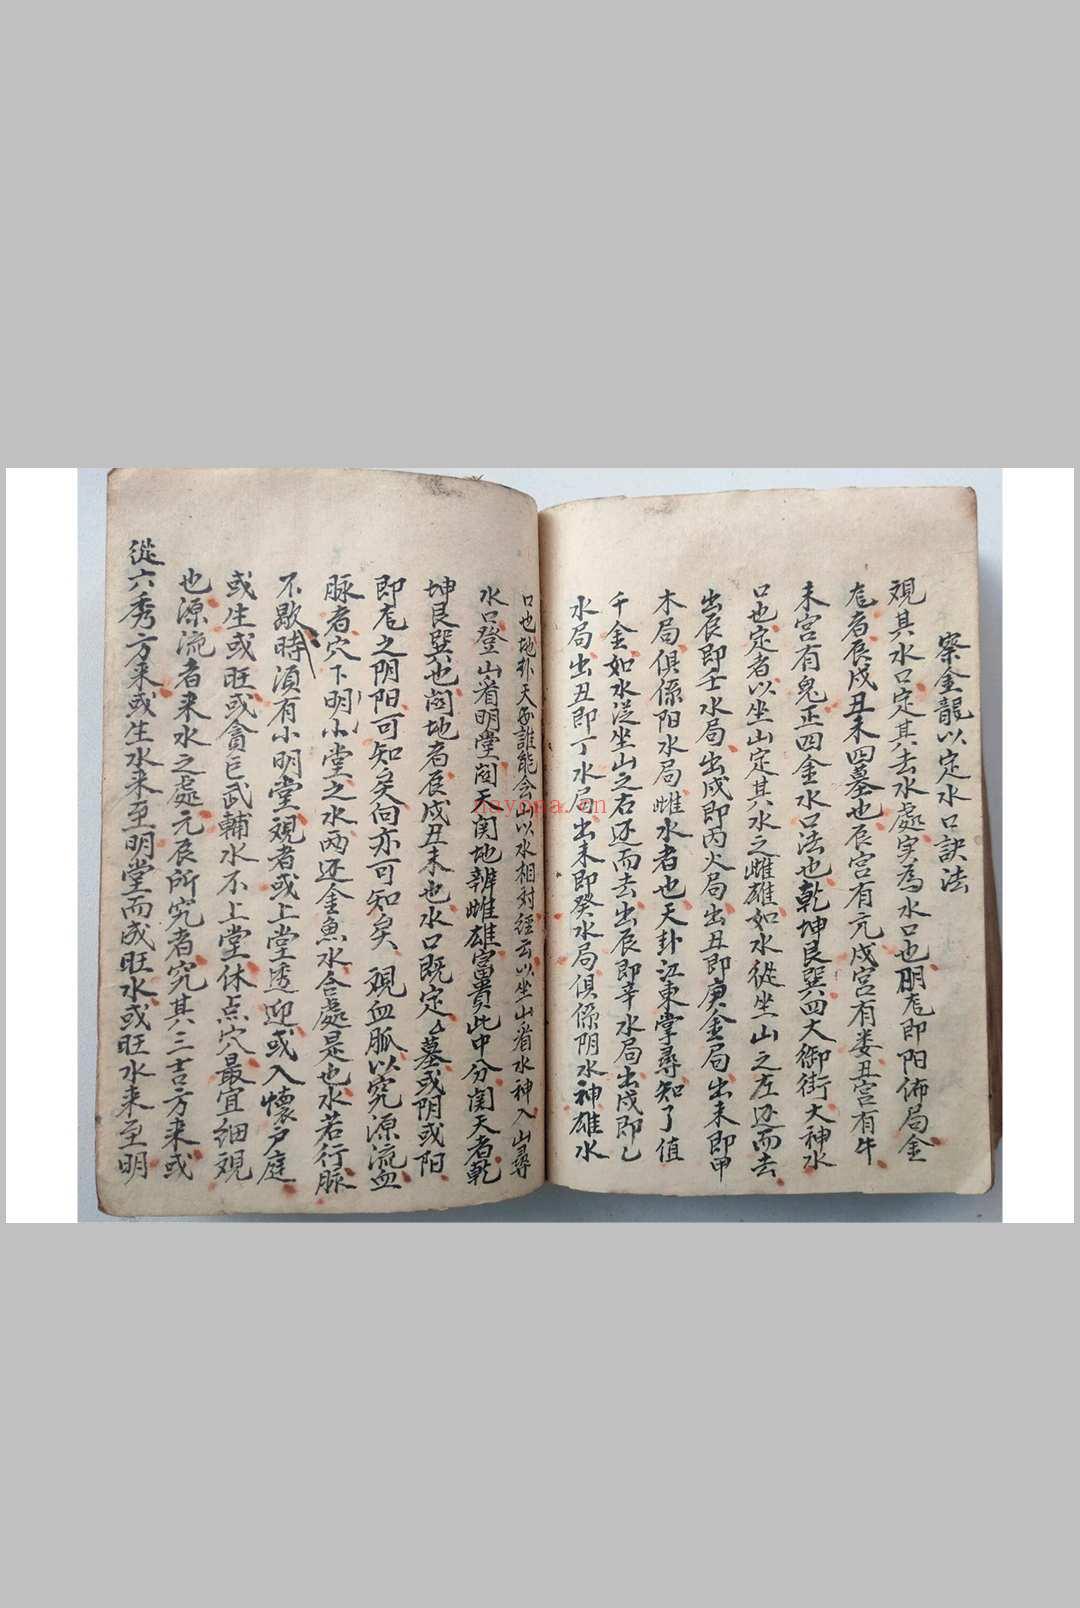 察金龍以定水口訣法
覌其水口定其去水處实為水口也明 即阳 局金
者辰戌丑未四墓也辰宫有亢戌宫有娄丑宫有牛
未宫有鬼正四金水口法也乾坤艮巽四大御街大神水
口也定者以坐山定其水之雌雄如水從坐山之左 而去
出辰即壬水局出戌即丙火局出丑即庚金局出未即甲
木局俱係阳水局雌水者也天卦江東掌尋知了值
千金如水 坐山之右还而去出辰即辛水局出戌即乙
水局出丑即丁水局出未即癸水局俱係阴水神雄水
口也地 天 誰能会山以水相对經云以坐山看水神入山尋
水口登山看明堂 天関地辨雌雄富貴此中分関天者乾
坤艮巽也 地者辰戌丑未也水口既定 墓或阴或阳
即 之阴阳可知矣向亦可知矣 覌血脈以究源流血
脉者穴下明小堂之水两还金魚水合處是也水若行脉
不歇時須有小明堂覌者或上堂透迎或入懷户庭
或生或旺或貪巨武輔水不上堂休点穴最宜細覌
也源流者来水之處元辰所究者究其三吉方来或
從六秀方来或生水来至明堂而成旺水或旺水来至明
nayona.cn